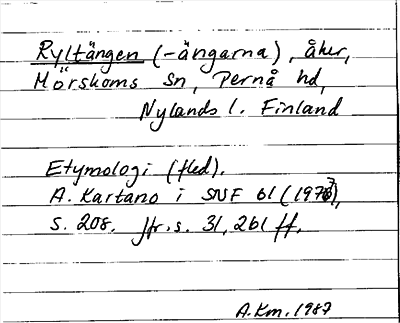 Ryltängen (-ängarna), åker,
Mörskoms sn, Pernå hd,
Nylands l. Finland
Etymologi (fled).
A. Kartano i SNF 61 (1977),
s. 208. Jfr. s. 31, 261 ff.
A.Km. 1987